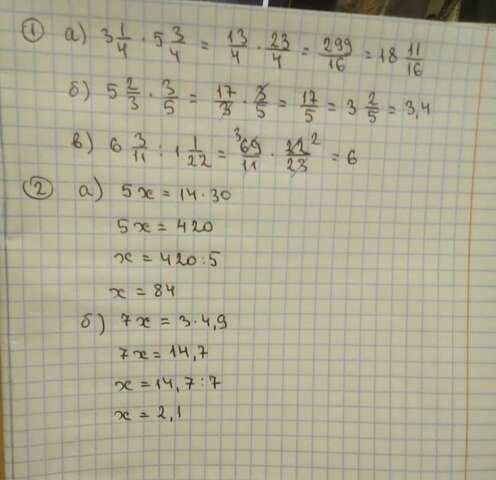 ① а) 3 1/4 · 5 3/4 = 13/4 · 23/4 = 299/16 = 18 11/16
б) 5 2/3 · 3/5 = 17/3 · 3/5 = 17/5 = 3 2/5 = 3,4
в) 6 3/11 · 1 1/22 = ³69/11 · 22²/23 = 6
② а) 5x = 14·30
5x = 420
x = 420:5
x = 84
б) 7x = 3·4,9
7x = 14,7
x = 14,7:7
x = 2,1